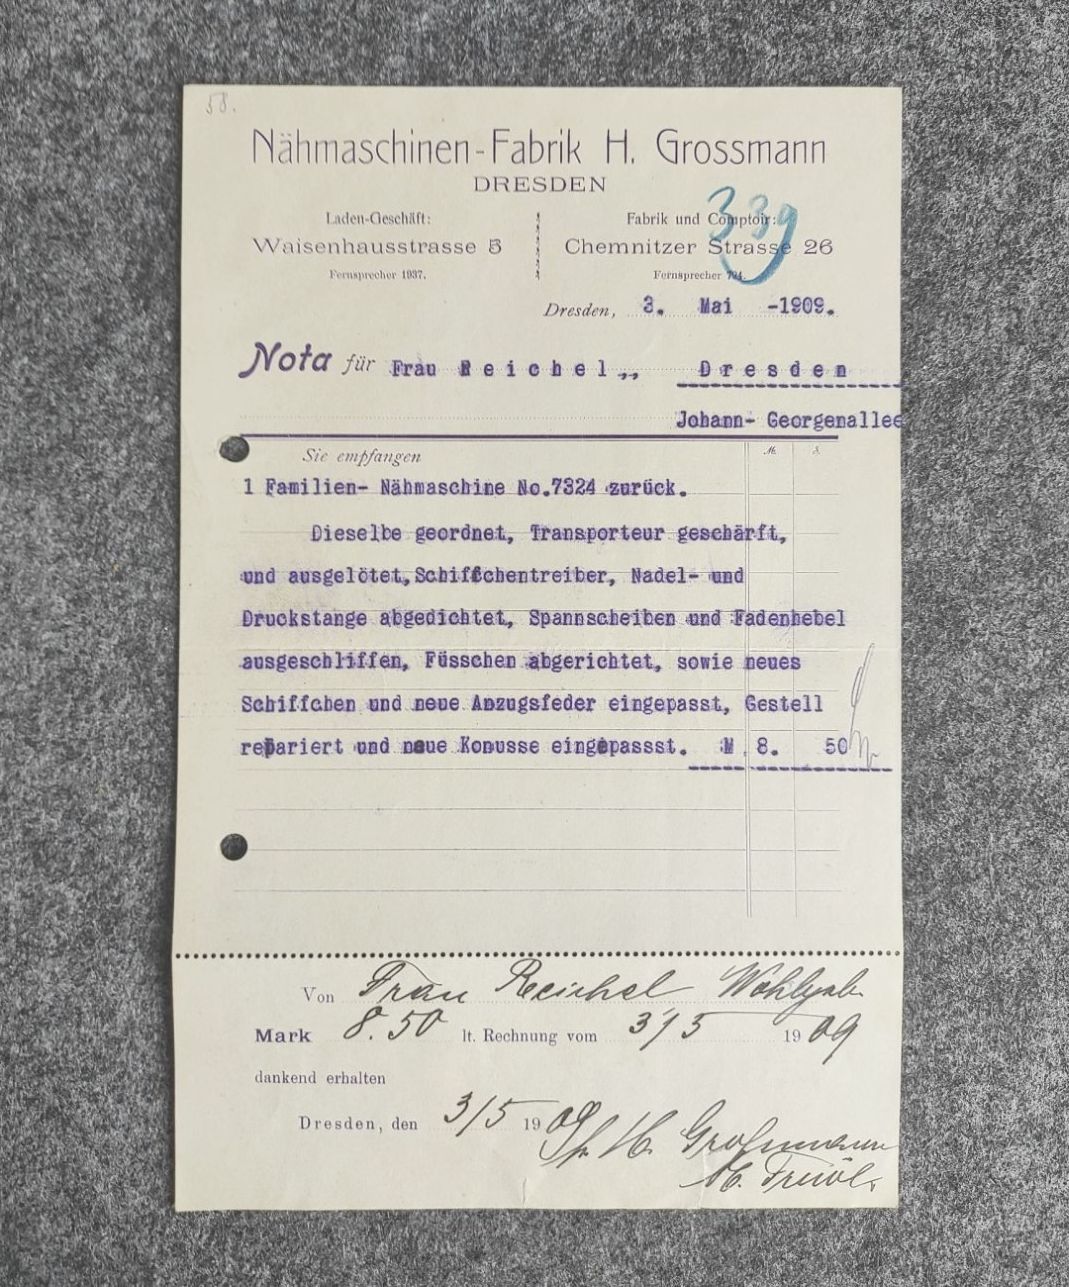 58.
Nähmaschinen-Fabrik H. Grossmann
DRESDEN
339
Laden-Geschäft: Fabrik und Comptoir:
Waisenhausstrasse 5 Chemnitzer Strasse 26
Fernsprecher 1937. Fernsprecher
Dresden, 3. Mai -1909.
Nota für Frau Reichel,, Dresden
Johann- Georgenallee
Sie empfangen M. S.
1 Familien- Nähmaschine No.7324 zurück.
Dieselbe geordnet, Transporteur geschärft,
und ausgelötet,Schiffchentreiber, Nadel- und
Druckstange abgedichtet, Spannscheiben und Fadenhebel
ausgeschliffen, Füsschen abgerichtet, sowie neues
Schiffchen und neue Anzugsfeder eingepasst, Gestell
repariert und neue Konusse eingepassst. M 8. 50
Von Frau Reichel Wohlgeb.
Mark 8.50 lt. Rechnung vom 3/5 1909
dankend erhalten
Dresden, den 3/5 1909
H. Großmann